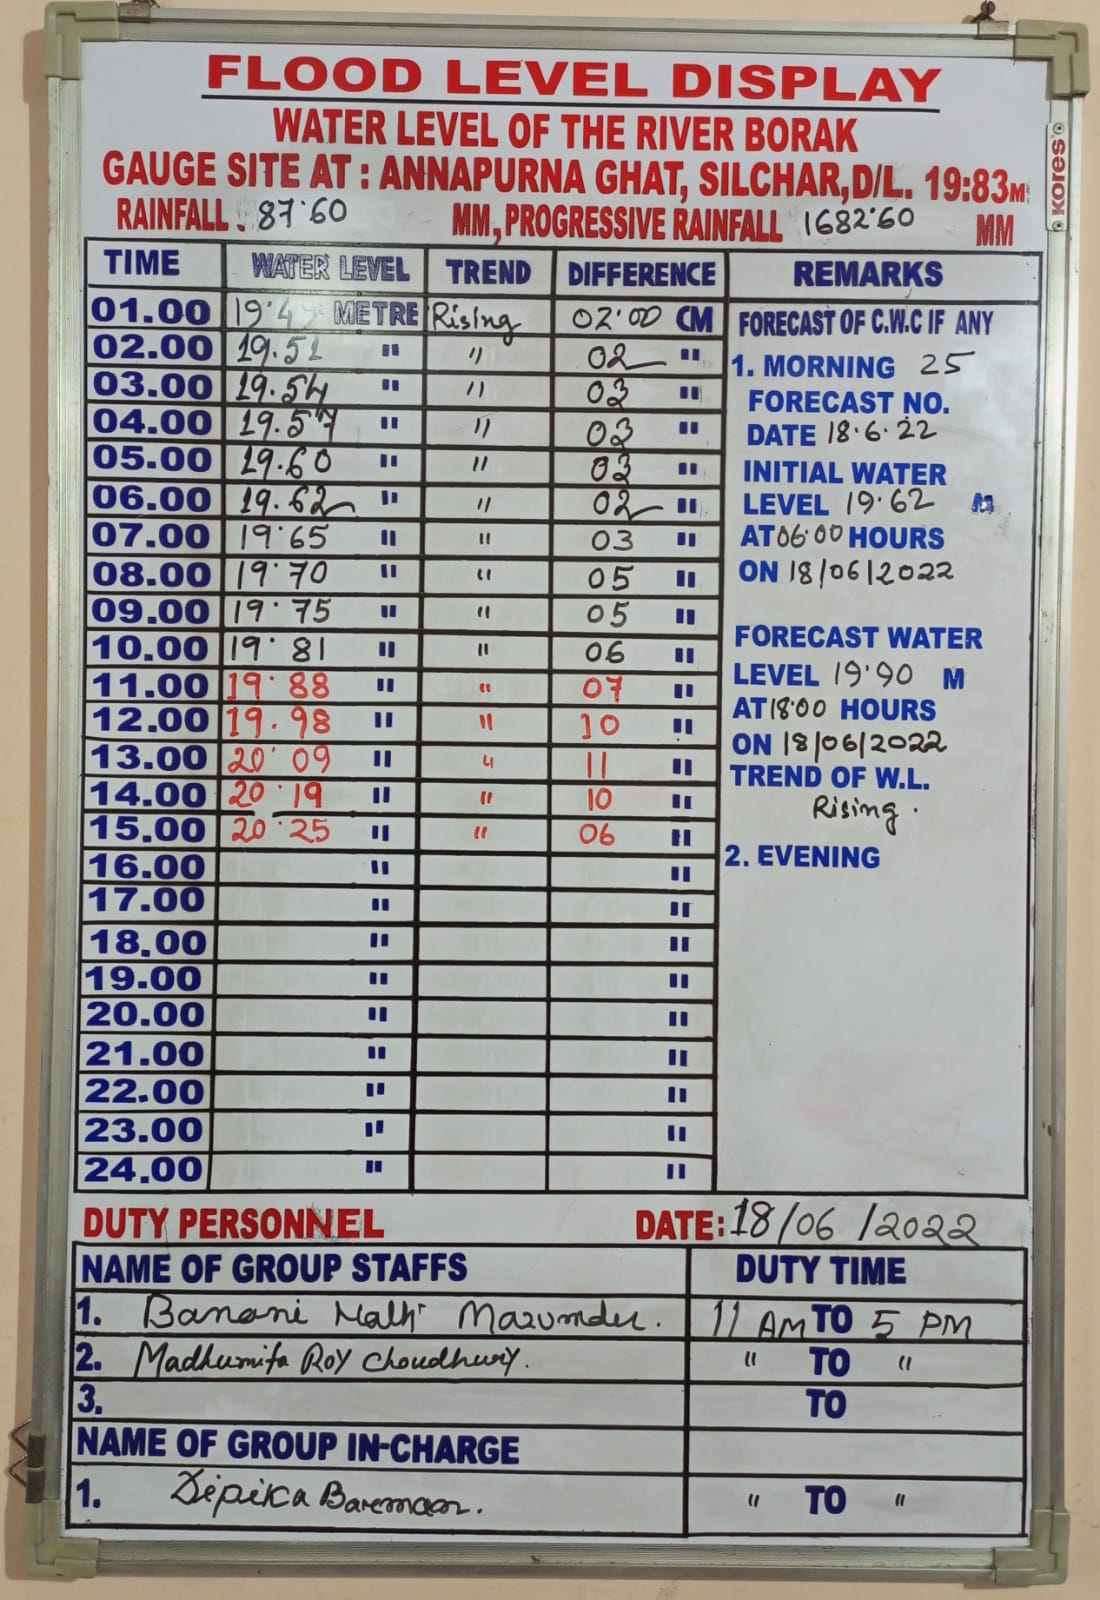 FLOOD LEVEL DISPLAY
WATER LEVEL OF THE RIVER BORAK
GAUGE SITE AT : ANNAPURNA GHAT, SILCHAR, D/L. 19:83M
RAINFALL. 87.60 MM, PROGRESSIVE RAINFALL 1682.60 MM
Kores
TIME WATER LEVEL TREND DIFFERENCE REMARKS
01.00 19.49 METRE Rising 02.00 CM
02.00 19.51 " " 02 "
03.00 19.54 " " 03 "
04.00 19.57 " " 03 "
05.00 19.60 " " 03 "
06.00 19.62 " " 02 "
07.00 19.65 " " 03 "
08.00 19.70 " " 05 "
09.00 19.75 " " 05 "
10.00 19.81 " " 06 "
11.00 19.88 " " 07 "
12.00 19.98 " " 10 "
13.00 20.09 " " 11 "
14.00 20.19 " " 10 "
15.00 20.25 " " 06 "
16.00 " "
17.00 " "
18.00 " "
19.00 " "
20.00 " "
21.00 " "
22.00 " "
23.00 " "
24.00 " "
FORECAST OF C.W.C IF ANY
1. MORNING 25
FORECAST NO.
DATE 18.6.22
INITIAL WATER
LEVEL 19.62 M
AT 06.00 HOURS
ON 18/06/2022
FORECAST WATER
LEVEL 19.90 M
AT 18.00 HOURS
ON 18/06/2022
TREND OF W.L.
Rising.
2. EVENING
DUTY PERSONNEL DATE: 18/06/2022
NAME OF GROUP STAFFS DUTY TIME
1. Banani Mazumder. 11 AM TO 5 PM
2. Madhumita Roy Choudhury. " TO "
3. TO
NAME OF GROUP IN-CHARGE
1. Dipika Baremaan. " TO "